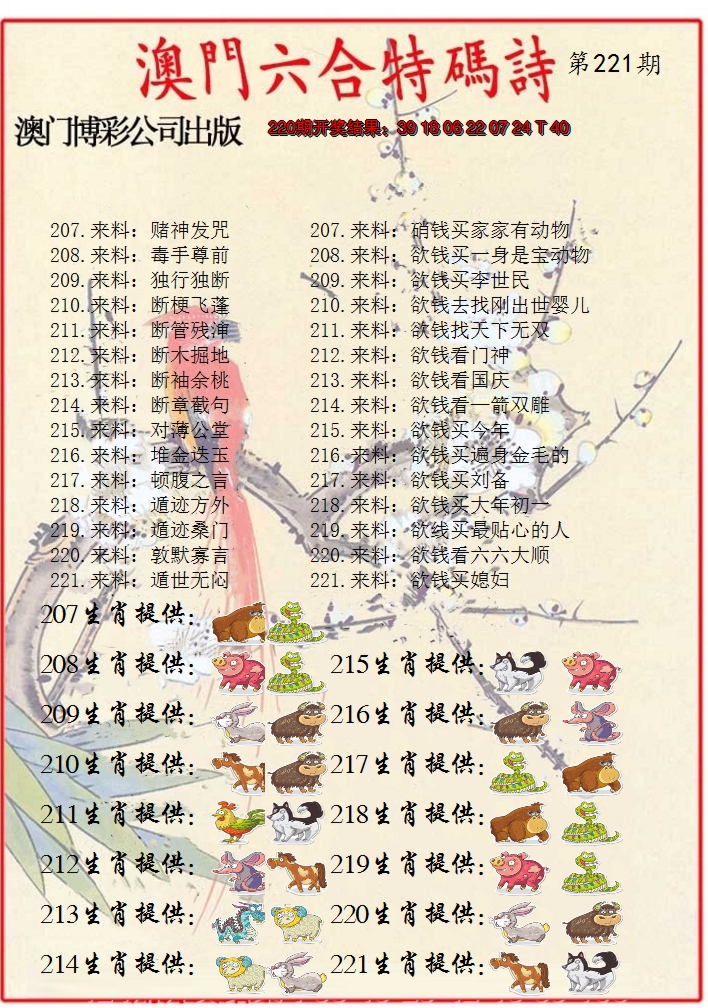 澳門六合特碼詩 第221期
澳门博彩公司出版 220期开奖结果：39 18 06 22 07 24 T 40
207.来料：赌神发咒 207.来料：硝钱买家家有动物
208.来料：毒手尊前 208.来料：欲钱买一身是宝动物
209.来料：独行独断 209.来料：欲钱买李世民
210.来料：断梗飞蓬 210.来料：欲钱去找刚出世婴儿
211.来料：断管残渖 211.来料：欲钱找天下无双
212.来料：断木掘地 212.来料：欲钱看门神
213.来料：断袖余桃 213.来料：欲钱看国庆
214.来料：断章截句 214.来料：欲钱看一箭双雕
215.来料：对薄公堂 215.来料：欲钱买今年
216.来料：堆金迭玉 216.来料：欲钱买遍身金毛的
217.来料：顿腹之言 217.来料：欲钱买刘备
218.来料：遁迹方外 218.来料：欲钱买大年初一
219.来料：遁迹桑门 219.来料：欲线买最贴心的人
220.来料：敦默寡言 220.来料：欲钱看六六大顺
221.来料：遁世无闷 221.来料：欲钱买媳妇
207生肖提供：
208生肖提供： 215生肖提供：
209生肖提供： 216生肖提供：
210生肖提供： 217生肖提供：
211生肖提供： 218生肖提供：
212生肖提供： 219生肖提供：
213生肖提供： 220生肖提供：
214生肖提供： 221生肖提供：